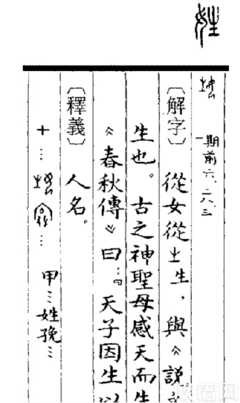 姓
前六、二八、三
一期
〔解字〕從女從生，與《說文
生也。古之神聖母感天而生
《春秋傳》曰：『天子因生以
〔釋義〕人名。
甲…姓㝃…